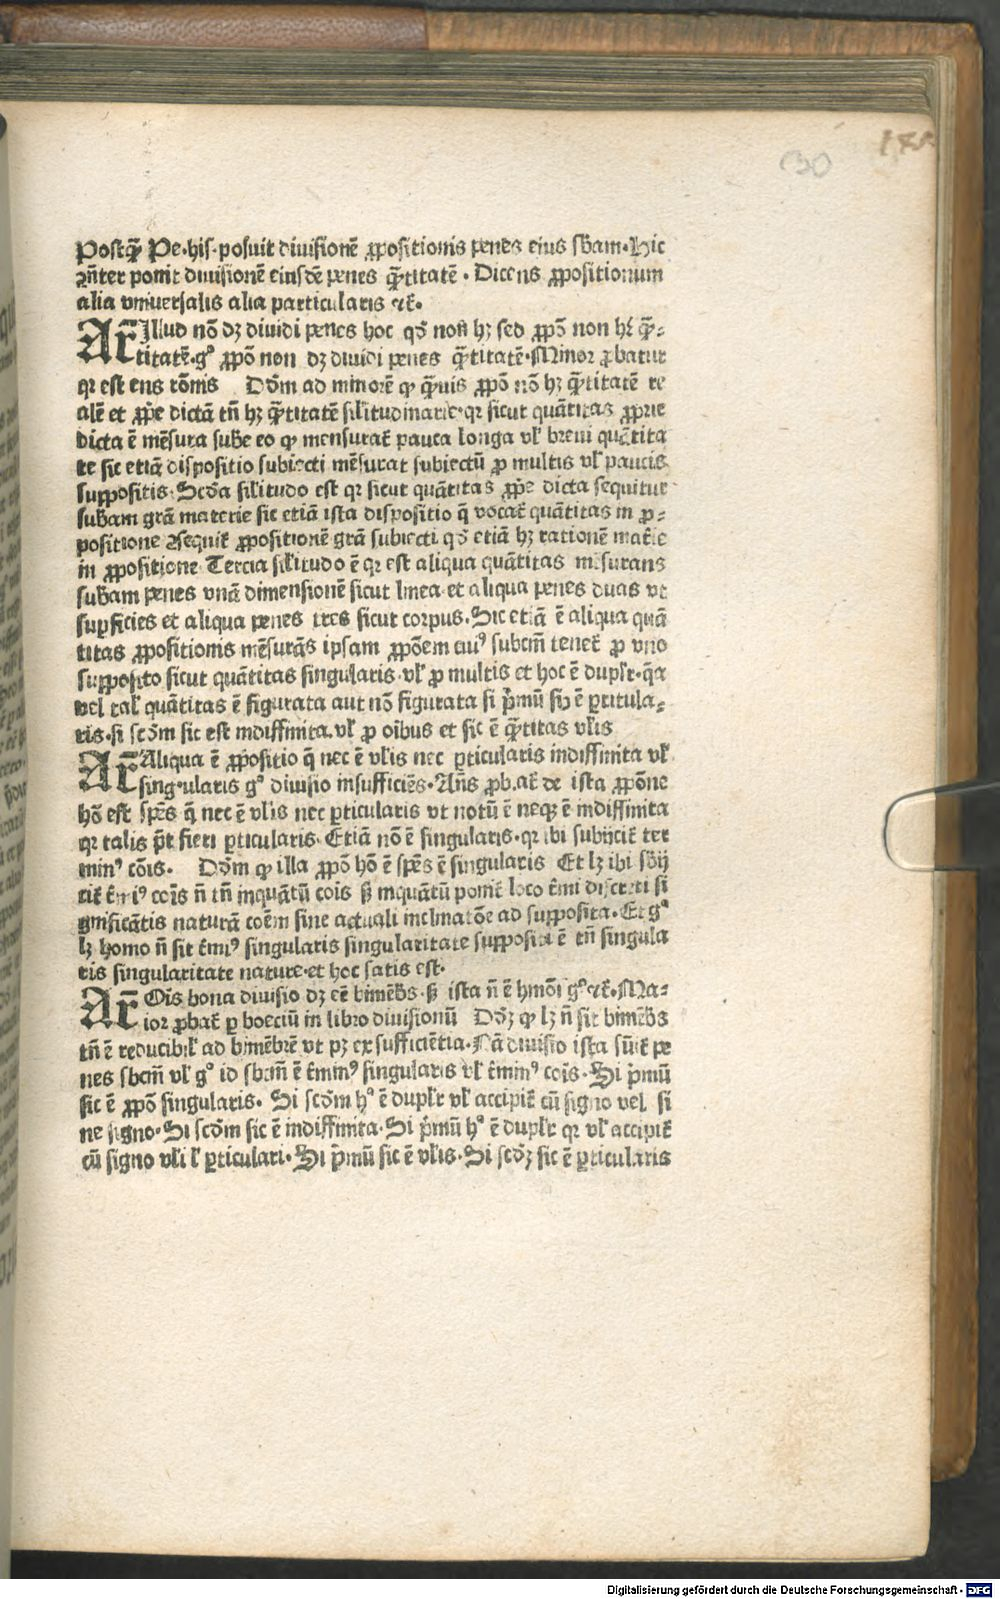 30
Postꝙ̃ Pe·his·posuit diuisionē ꝓpositionis penes eius sb̄am·Hic
ꝯn̄ter ponit diuisionē eiusdē penes q̄ntitatē·Dicens ꝓpositionum
alia vniuersalis alia particularis ⁊c̄·
Ar̄ Illud nō dꝫ diuidi penes hoc qd̄ non hꝫ sed ꝓpō non hꝫ q̄n⸗
titatē·gͦ ꝓpō non dꝫ diuidi penes q̄ntitatē·Minor ꝓbatur
qꝛ est ens rōnis Dōm ad minorē ꝙ q̄uis ꝓpō nō hꝫ q̄ntitatē re
alē et ꝓpͥe dictā tn̄ hꝫ q̄ntitatē silitudinarie·qꝛ sicut quātitas ꝓprie
dicta ē mēsura sube eo ꝙ mensurat̄ pauca longa vl̄ breui quātita
te sic etiā dispositio subiecti mēsurat subiectū ꝓ multis vl̄ paucis
suppositis·Scd̄a silitudo est qꝛ sicut quātitas ꝓpͥe dicta sequitur
sub̄am grā materie sic etiā ista dispositio q̄ vocat̄ quātitas in ꝓ⸗
positione ꝯsequit̄ ꝓpositionē grā subiecti qd̄ etiā hꝫ rationē mat̄ie
in ꝓpositione Tercia silitudo ē qꝛ est aliqua quātitas mēsurans
sub̄am penes vnā dimensionē sicut linea et aliqua penes duas vt
suꝑficies et aliqua penes tres sicut corpus·Sic etiā ē aliqua quā
titas ꝓpositionis mēsurās ipsam ꝓpōem cuiꝰ subcm̄ tenet̄ ꝓ vno
supposito sicut quātitas singularis·vl̄ ꝓ multis et hoc ē duplr̄·qꝛ
vel tal̄ quātitas ē figurata aut nō figurata si p̄mū sic ē ꝑticula⸗
ris·si scd̄m sic est indiffinita·vl̄ ꝓ oībus et sic ē q̄ntitas vl̄is
Ar̄ Aliqua ē ꝓpositio q̄ nec ē vl̄is nec ꝑticularis indiffinita vl̄
singularis gͦ diuisio insufficiēs·Añs ꝓbat̄ de ista ꝓpōne
hō est spēs q̄ nec ē vl̄is nec ꝑticularis vt notū ē neqꝫ ē indiffinita
qꝛ talis pōt fieri ꝑticularis·Etiā nō ē singularis·qꝛ ibi subijcit̄ ter
minꝰ cōis· Dōm ꝙ illa ꝓpō hō ē spēs ē singularis Et lꝫ ibi sb̄ij
cit̄ t̄miꝰ cōis n̄ tn̄ inquātū cōis sꝫ inquātū ponit̄ loco t̄mi discreti si
gnificātis naturā coēm sine actuali inclinatōe ad supposita·Et gͦ
lꝫ homo n̄ sit t̄miꝰ singularis singularitate suppositi ē tn̄ singula
ris singularitate nature·et hoc satis est·
Ar̄ Oīs bona diuisio dꝫ eē bimēb̄s·sꝫ ista n̄ ē hmōi gͦ ⁊c̄·Ma⸗
ior ꝓbat̄ ꝑ boeciū in libro diuisionū Dōꝫ ꝙ lꝫ n̄ sit bimēb̄s
tn̄ ē reducibil̄ ad bimēbrē vt pꝫ ex sufficiētia·Nā diuisio ista sūit̄ pe
nes sbcm̄ vl̄ gͦ id sbcm̄ ē t̄minꝰ singularis vl̄ t̄minꝰ cois·Si p̄mū
sic ē ꝓpō singularis· Si scd̄m hͦ ē duplr̄ vl̄ accipit̄ cū signo vel si
ne signo·Si scd̄m sic ē indiffinita·Si p̄mū hͦ ē duplr̄ qꝛ vl̄ accipit̄
cū signo vl̄i l̄ ꝑticulari·Si p̄mū sic ē vl̄is·Si scd̄ꝫ sic ē ꝑticularis
Digitalisierung gefördert durch die Deutsche Forschungsgemeinschaft - DFG